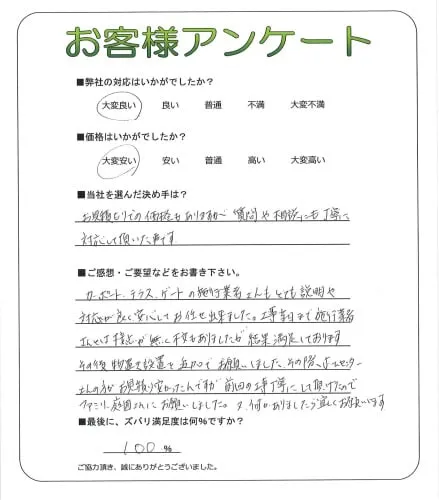 お客様アンケート
■弊社の対応はいかがでしたか？
大変良い 良い 普通 不満 大変不満
■価格はいかがでしたか？
大変安い 安い 普通 高い 大変高い
■当社を選んだ決め手は？
お見積もりでの価格もありますが 質問や相談にも丁寧に
対応して頂いた点です
■ご感想・ご要望などをお書き下さい。
カーポート、テラス、ゲートの施行業者さんもとても説明や
対応が良く安心してお任せ出来ました。工事前日まで施行業者
さんとは接点が無く不安もありましたが結果満足しております
その後 物置を設置を追加でお願いしました。その際、ホームセンター
さんの方がお見積り安かったんですが 前回の工事丁寧にして頂けたので
ファミリー庭園さんにお願いしました。又、何かありましたら宜しくお願いします
■最後に、ズバリ満足度は何％ですか？
100 %
ご協力頂き、誠にありがとうございました。